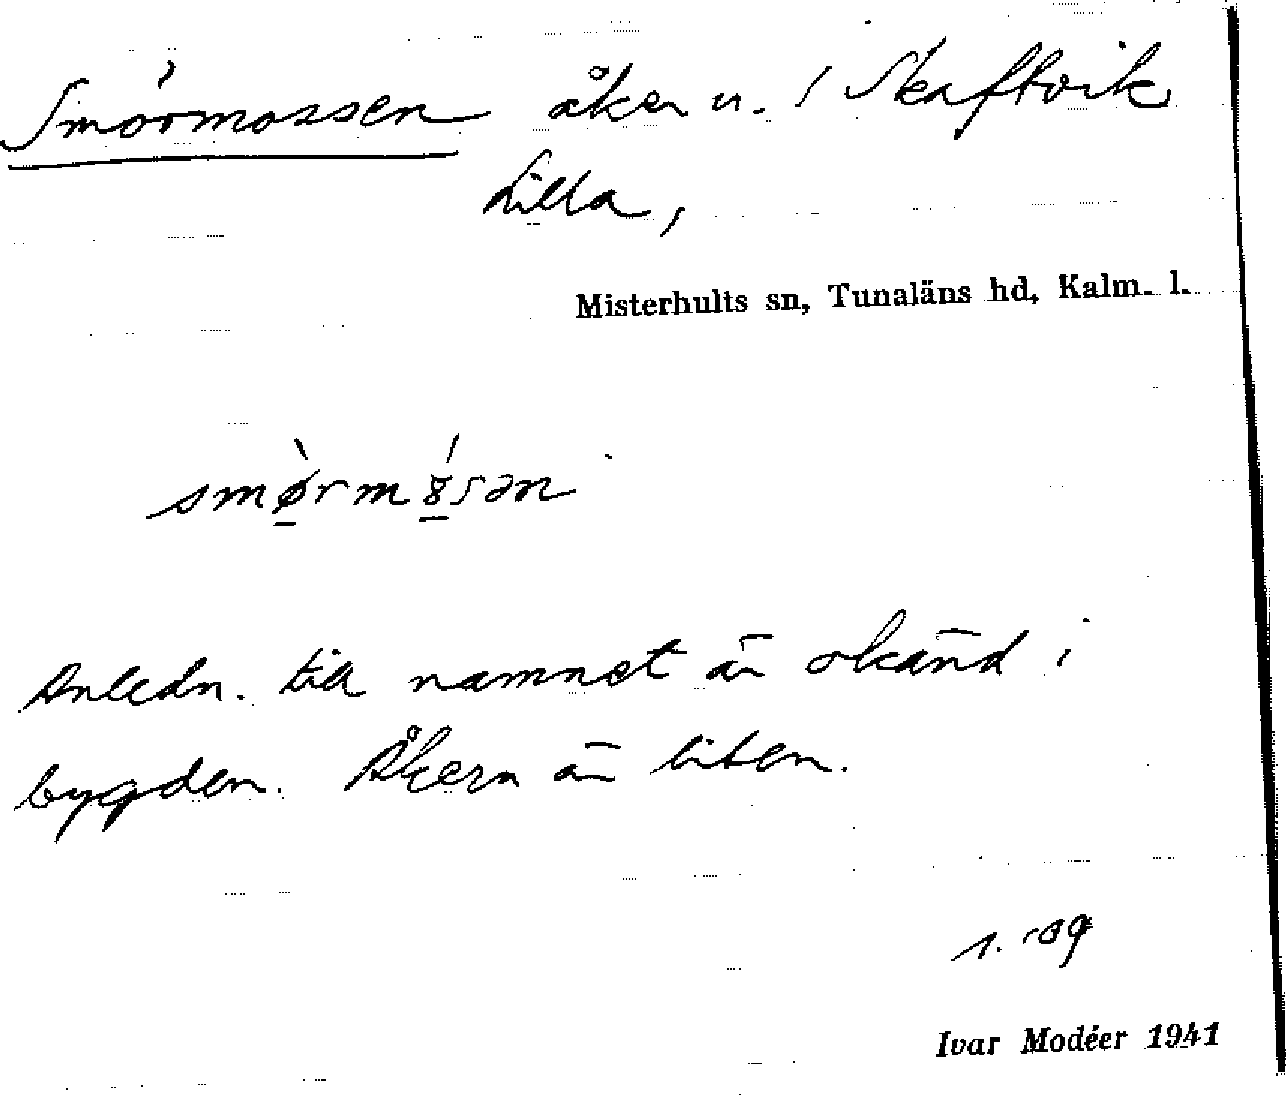 Smörmossen åker u. / Skaftvik
Lilla,
Misterhults sn, Tunaläns hd, Kalm. l.
smø̀rmȣ́sən
Anledn. till namnet är okänd i
bygden. Åkern är liten.
s. 109
Ivar Modéer 1941